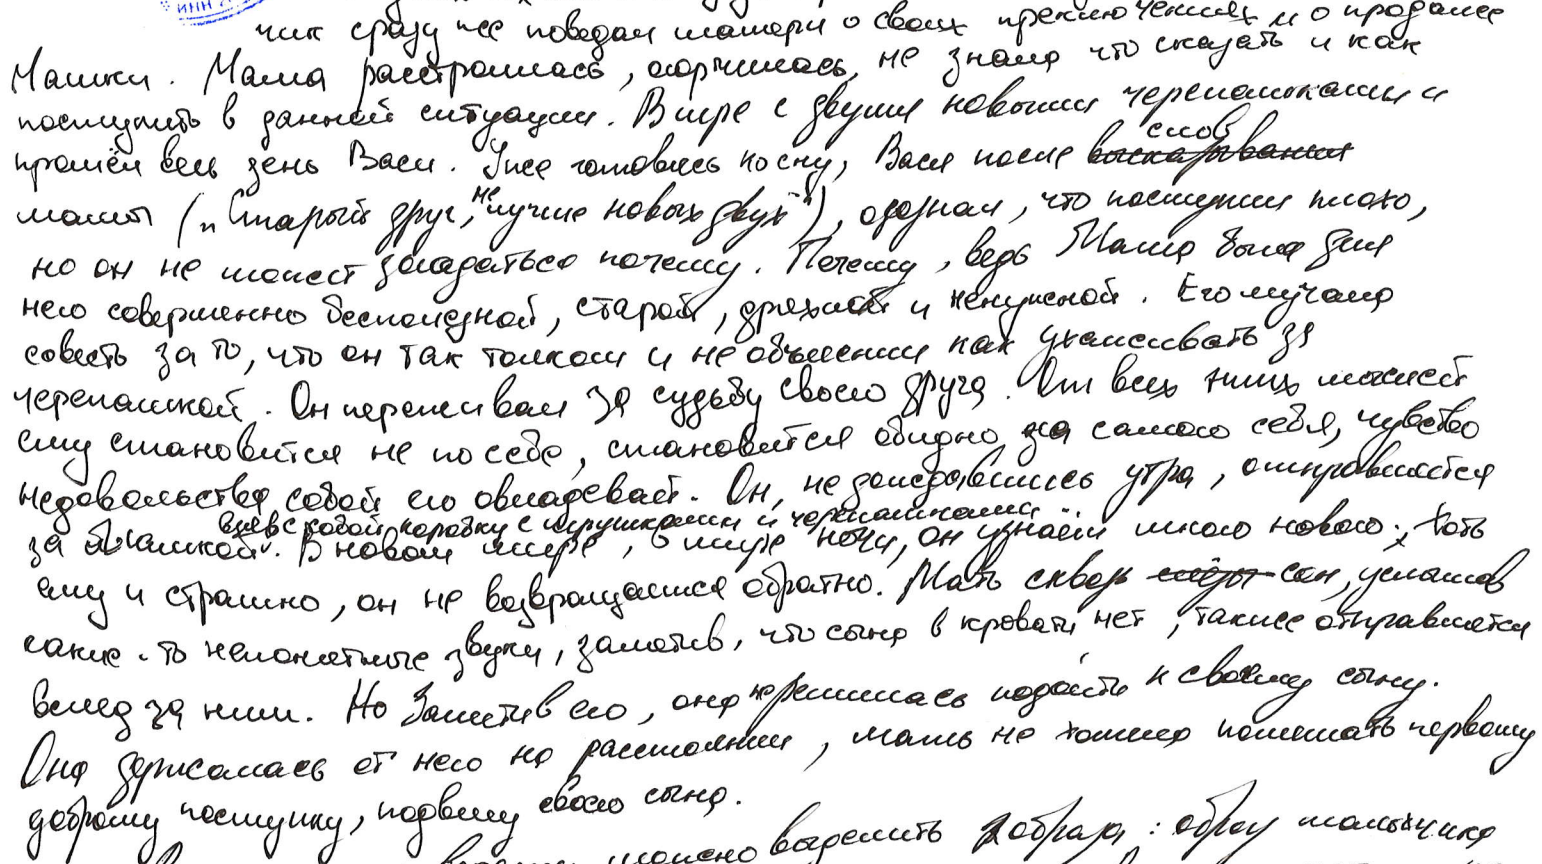 ИНН
чик сразу же поведал матери о своих приключениях и о продаже
Машки. Мама расстроилась, огорчилась, не знала что сказать и как
поступить в данной ситуации. В игре с двумя новыми черепашками и
прошёл весь день Васи. Уже готовясь ко сну, Вася после высказывания слов
мамы („Старый друг, не лучше новых двух"), осознал, что поступил плохо,
но он не может догадаться почему. Почему, ведь Маша была для
него совершенно бесполезной, старой, дряхлой и ненужной. Его мучала
совесть за то, что он так толком и не объяснил как ухаживать за
черепашкой. Он переживал за судьбу своего друга. От всех этих мыслей
ему становится не по себе, становится обидно за самого себя, чувство
недовольства собой его овладевает. Он, не дождавшись утра, отправляется
взяв с собой коробку с игрушками и черепашками
за Машкой. В новом мире, в мире ночи, он узнаёт много нового. Хоть
ему и страшно, он не возвращается обратно. Мать сквозь сон, услышав
какие-то непонятные звуки, заметив, что сына в кровати нет, также отправляется
вслед за ним. Но заметив его, она не решилась подойти к своему сыну.
Она держалась от него на расстоянии, мать не хотела помешать первому
доброму поступку, подвигу своего сына.
можно выделить 2 образа: образ мальчика